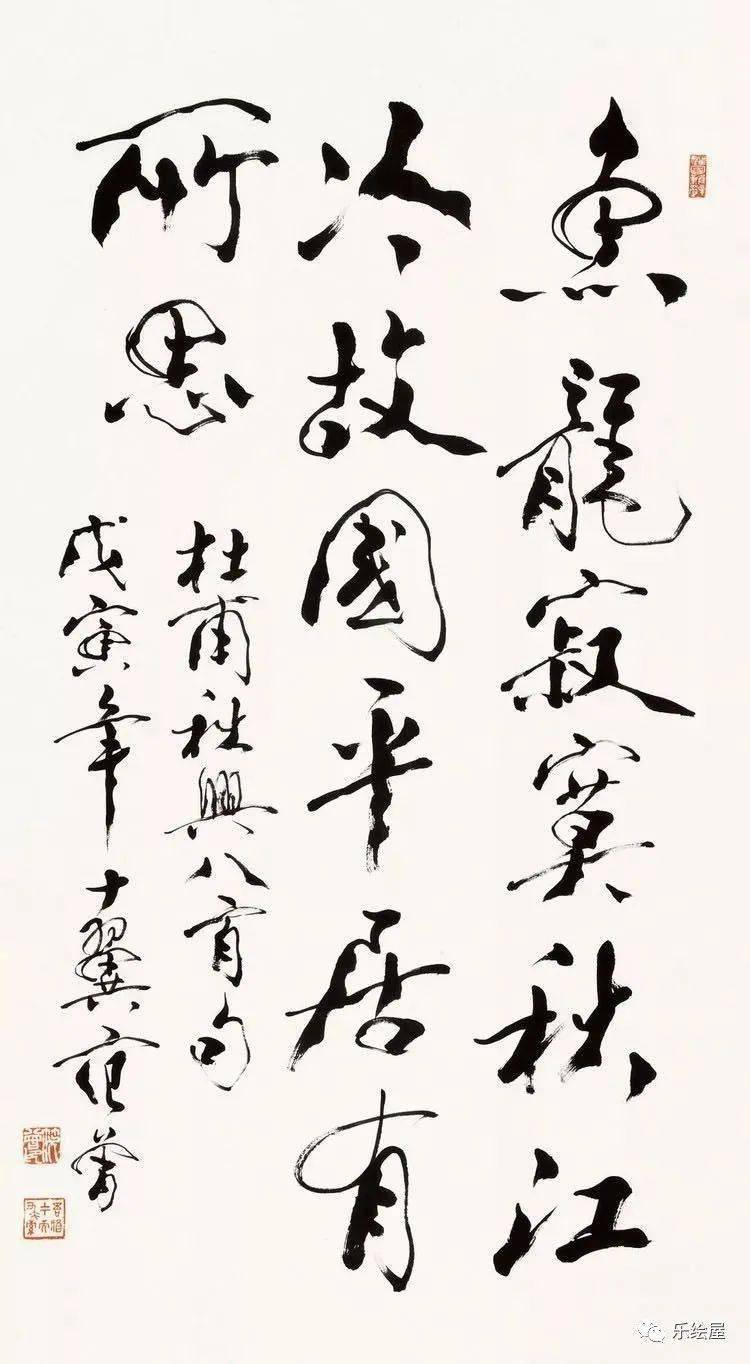 魚龍寂寞秋江
冷故國平居有
所思
杜甫秋興八首句
戊寅年十翼范曾
乐绘屋